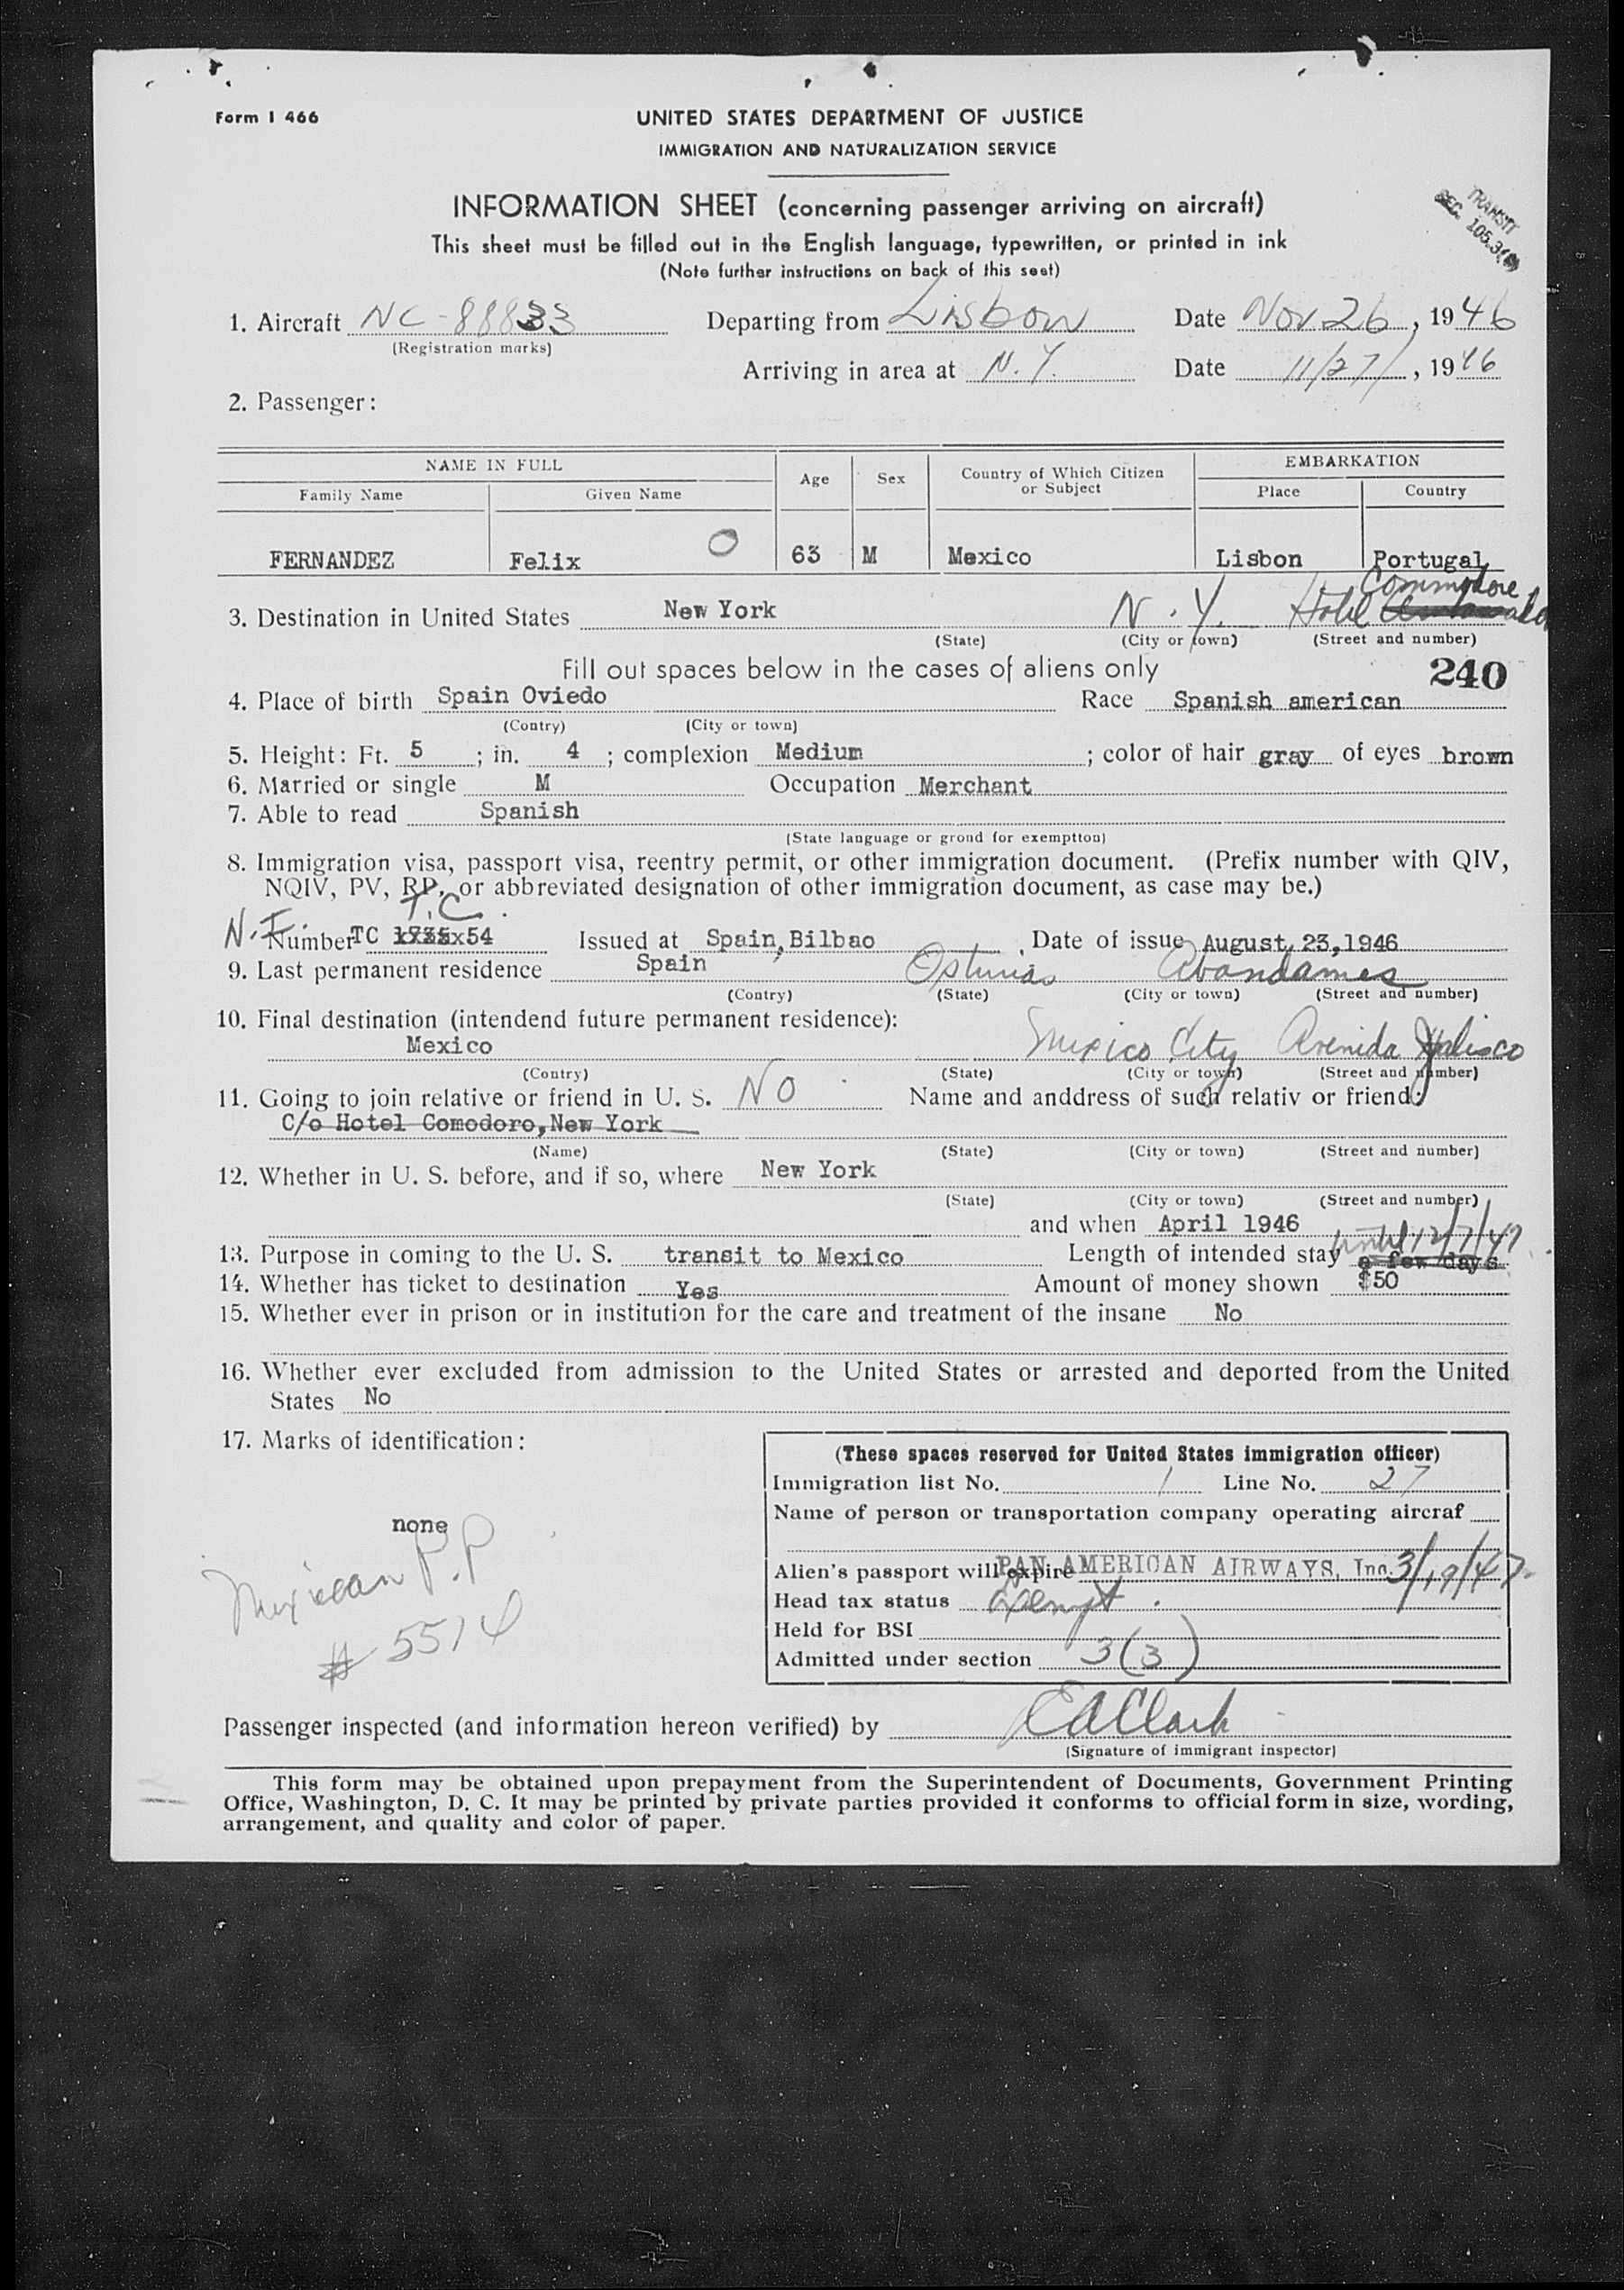 Form I 466
UNITED STATES DEPARTMENT OF JUSTICE
IMMIGRATION AND NATURALIZATION SERVICE
INFORMATION SHEET (concerning passenger arriving on aircraft)
TRANSIT
SEC. 105.3(
This sheet must be filled out in the English language, typewritten, or printed in ink
(Note further instructions on back of this seet)
1. Aircraft NC-88833 Departing from Lisbon Date Nov. 26, 1946
(Registration marks)
Arriving in area at N.Y. Date 11/27/, 1946
2. Passenger:
NAME IN FULL Age Sex Country of Which Citizen or Subject EMBARKATION
Family Name Given Name Place Country
FERNANDEZ Felix O 63 M Mexico Lisbon Portugal
Commodore
3. Destination in United States New York N.Y. Hotel
(State) (City or town) (Street and number)
Fill out spaces below in the cases of aliens only 240
4. Place of birth Spain Oviedo Race Spanish american
(Contry) (City or town)
5. Height: Ft. 5 ; in. 4 ; complexion Medium ; color of hair gray of eyes brown
6. Married or single M Occupation Merchant
7. Able to read Spanish
(State language or grond for exemptton)
8. Immigration visa, passport visa, reentry permit, or other immigration document. (Prefix number with QIV,
NQIV, PV, RP, or abbreviated designation of other immigration document, as case may be.)
T.C.
N.I. Number TC 54 Issued at Spain, Bilbao Date of issue August, 23,1946
9. Last permanent residence Spain Asturias Abandames
(Contry) (State) (City or town) (Street and number)
10. Final destination (intendend future permanent residence):
Mexico Mexico City Avenida Jalisco
(Contry) (State) (City or town) (Street and number)
11. Going to join relative or friend in U. S. NO Name and anddress of such relativ or friend:
C/o Hotel Comodoro,New York
(Name) (State) (City or town) (Street and number)
12. Whether in U. S. before, and if so, where New York
(State) (City or town) (Street and number)
and when April 1946
13. Purpose in coming to the U. S. transit to Mexico Length of intended stay a few days until 12/7/47
14. Whether has ticket to destination Yes Amount of money shown $50
15. Whether ever in prison or in institution for the care and treatment of the insane No
16. Whether ever excluded from admission to the United States or arrested and deported from the United
States No
17. Marks of identification:
none
Mexican P.P
# 5514
(These spaces reserved for United States immigration officer)
Immigration list No. 1 Line No. 27
Name of person or transportation company operating aircraf
Alien's passport will expire PAN AMERICAN AIRWAYS, Inc. 3/19/47
Head tax status exempt.
Held for BSI
Admitted under section 3(3)
Passenger inspected (and information hereon verified) by EAClark
(Signature of immigrant inspector)
This form may be obtained upon prepayment from the Superintendent of Documents, Government Printing
Office, Washington, D. C. It may be printed by private parties provided it conforms to official form in size, wording,
arrangement, and quality and color of paper.